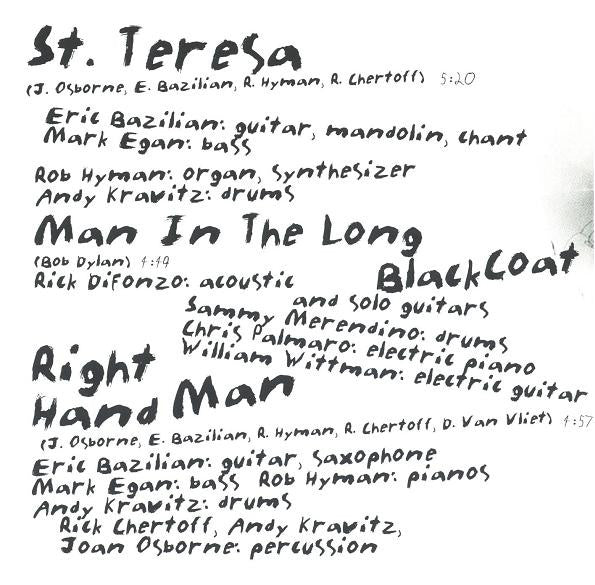 St. Teresa
(J. Osborne, E. Bazilian, R. Hyman, R. Chertoff) 5:20
Eric Bazilian: guitar, mandolin, chant
Mark Egan: bass
Rob Hyman: organ, synthesizer
Andy Kravitz: drums
Man In The Long
Black Coat
(Bob Dylan) 4:49
Rick DiFonzo: acoustic
and solo guitars
Sammy Merendino: drums
Chris Palmaro: electric piano
William Wittman: electric guitar
Right
Hand Man
(J. Osborne, E. Bazilian, R. Hyman, R. Chertoff, D. Van Vliet) 4:57
Eric Bazilian: guitar, saxophone
Mark Egan: bass Rob Hyman: pianos
Andy Kravitz: drums
Rick Chertoff, Andy Kravitz,
Joan Osborne: percussion